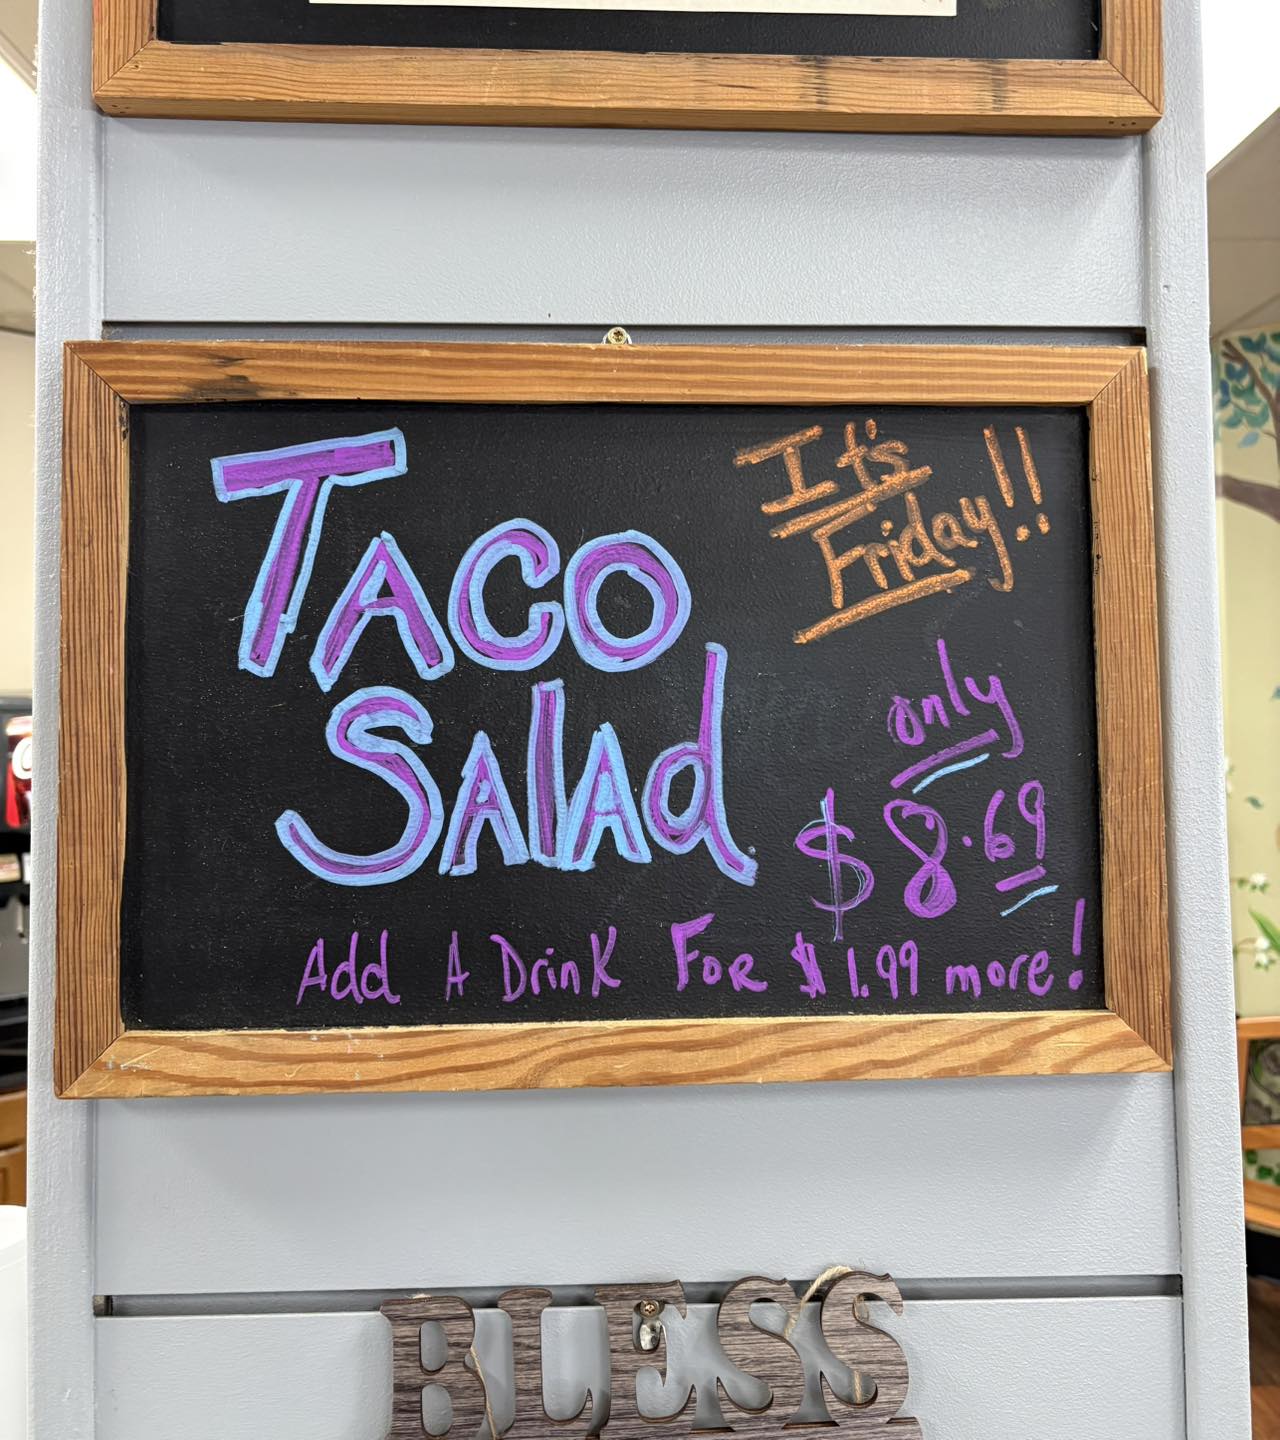 TACO
SALAd
It's
Friday!!
only
$8.69
Add A DrinK FOR $1.99 more!
BLESS